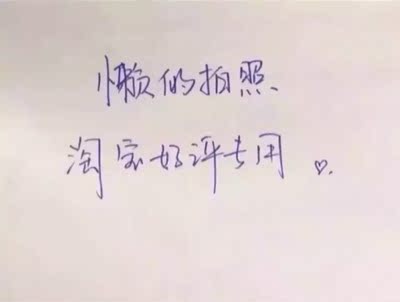 懒的拍照
淘宝好评专用♡.